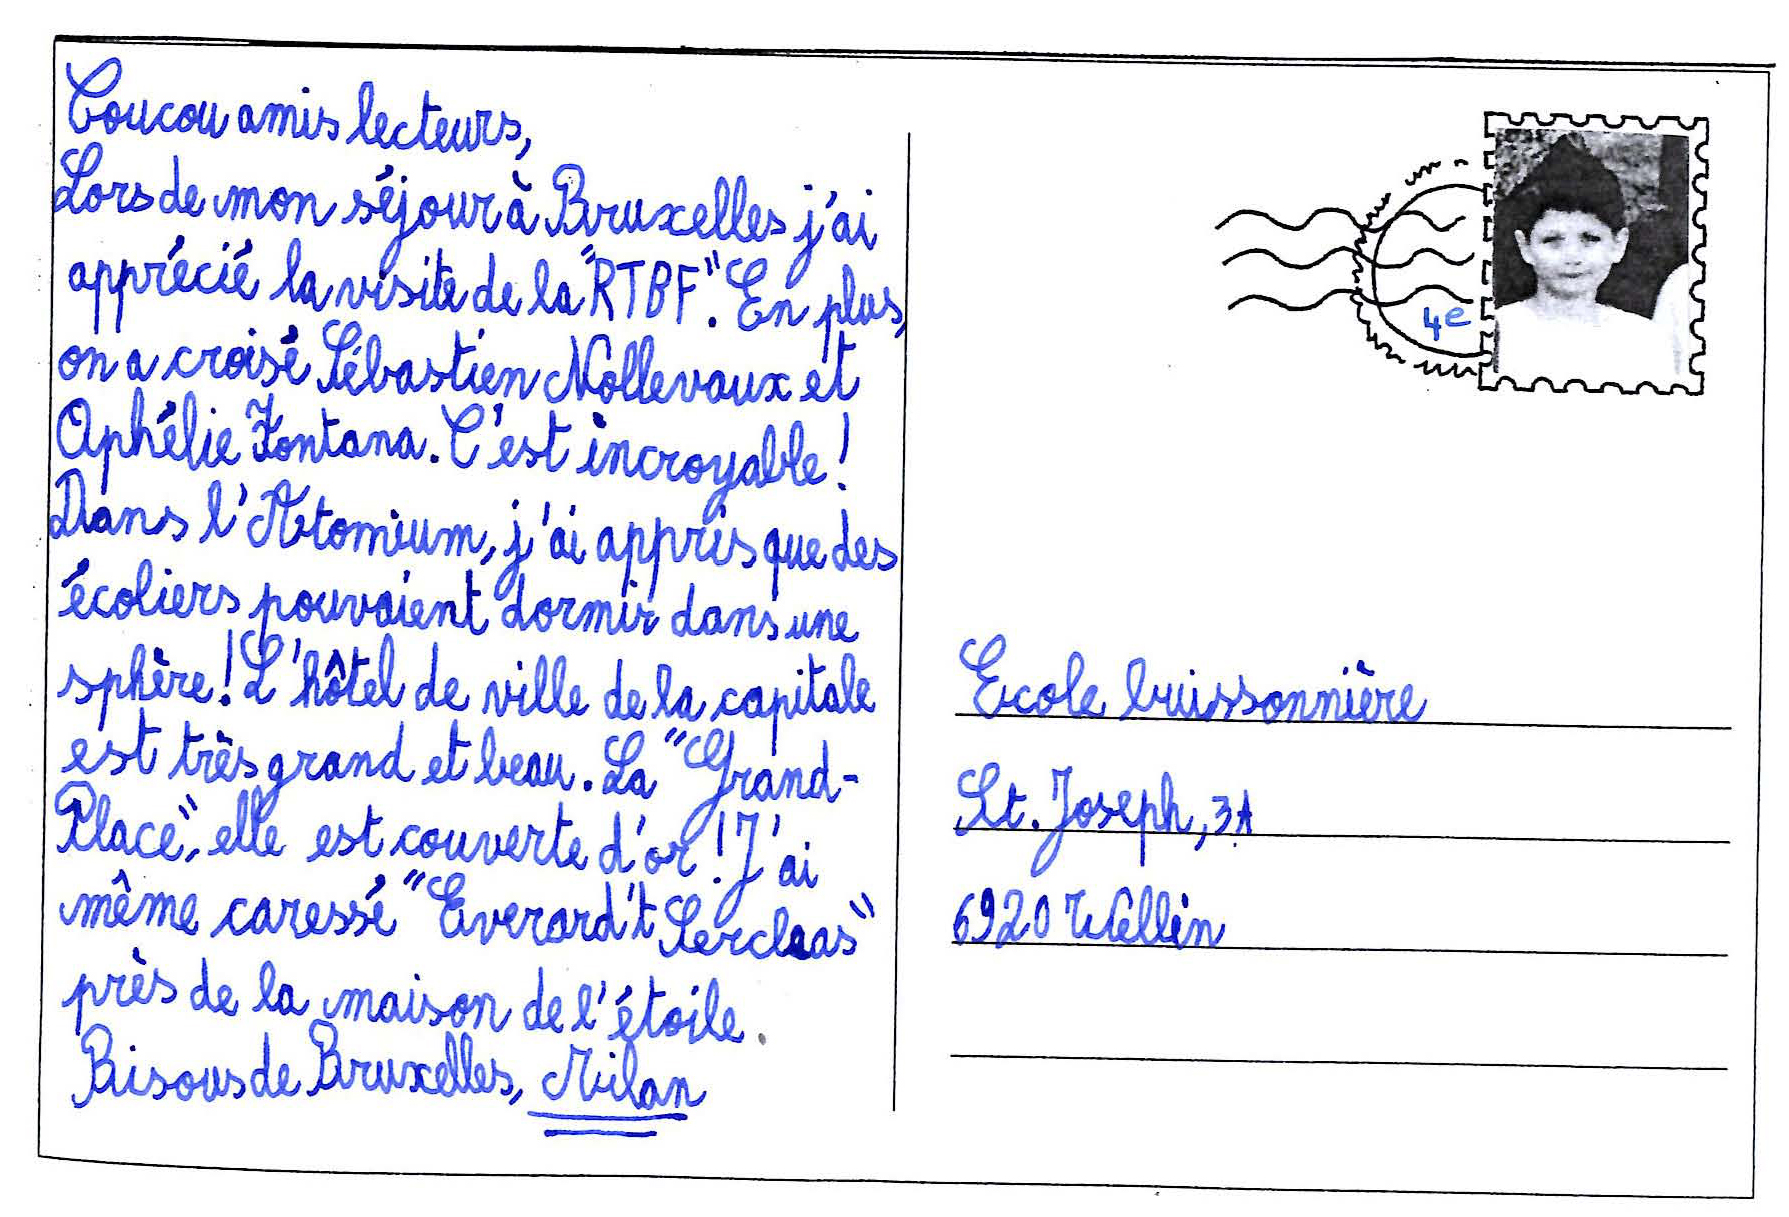 Coucou amis lecteurs,
Lors de mon séjour à Bruxelles j'ai
apprécié la visite de la "RTBF". En plus,
on a croisé Sébastien Nollevaux et
Ophélie Fontana. C'est incroyable !
Dans l'Atomium, j'ai appris que des
écoliers pouvaient dormir dans une
sphère ! L'hôtel de ville de la capitale
est très grand et beau. La "Grand-
Place", elle est couverte d'or ! J'ai
même caressé "Everard't Serclaas"
près de la maison de l'étoile.
Bisous de Bruxelles, Milan
4e
Ecole buissonnière
St. Joseph, 3A
6920 Wellin